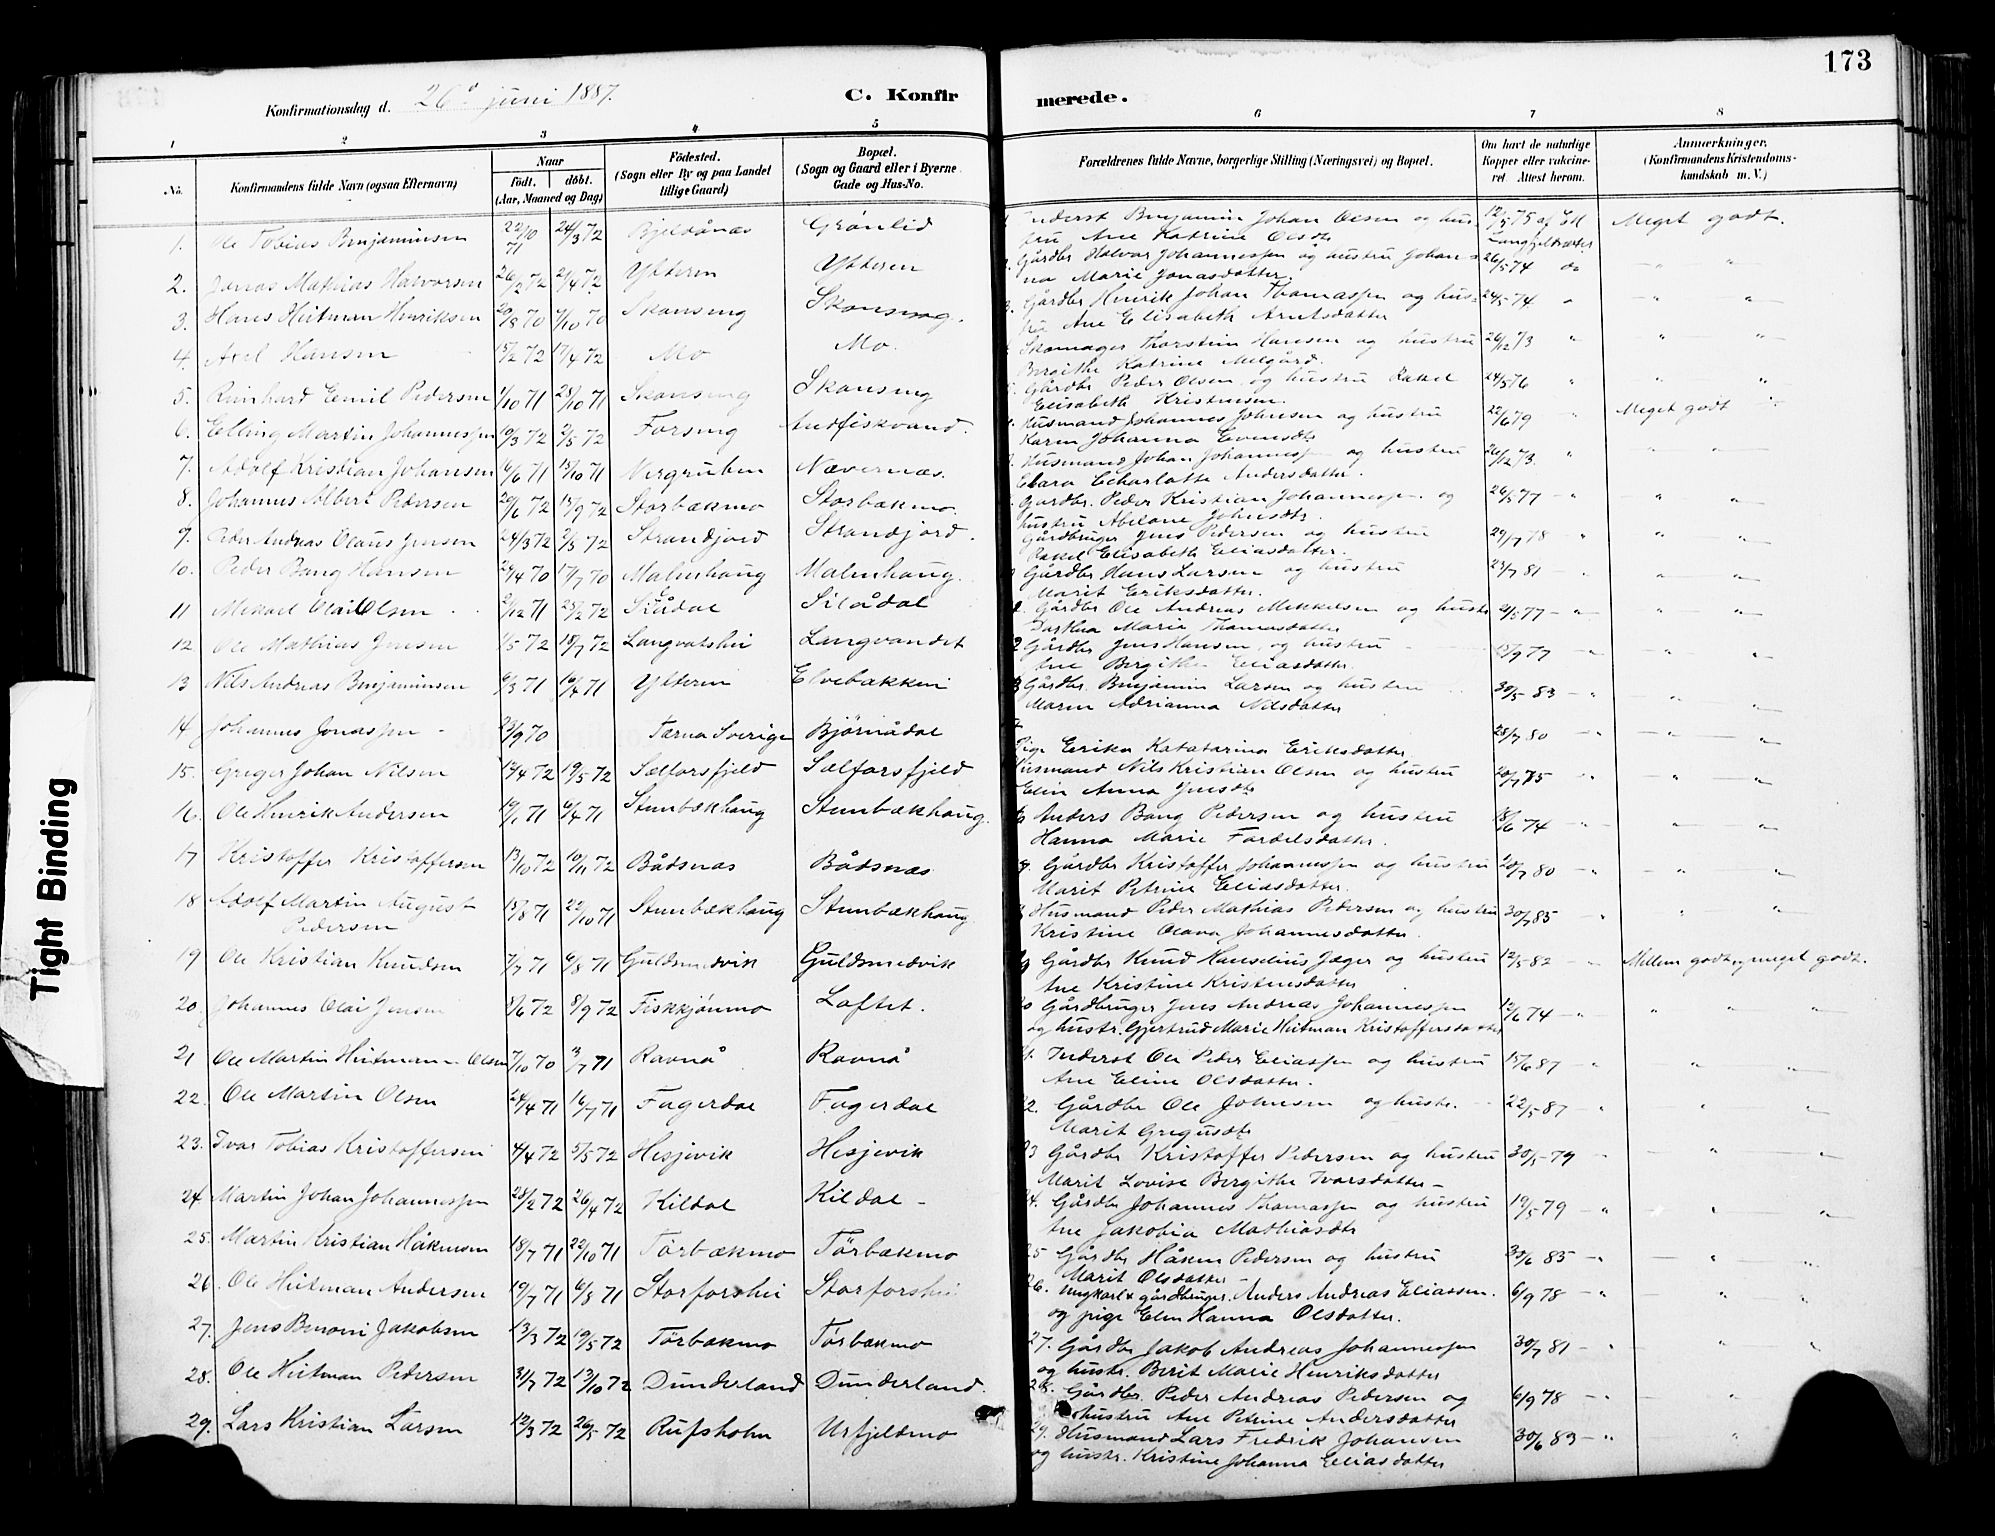 173
Konfirmationsdag d. 26de juni 1887.
C. Konfirmerede.
1 2 3 4 5 6 7 8
No.
Konfirmandens fulde Navn (ogsaa Efternavn)
Naar
født. døbt.
(Aar, Maaned og Dag)
Fødested.
(Sogn eller By og paa Landet
tillige Gaard)
Bopæl.
(Sogn og Gaard eller i Byerne
Gade og Hus-No.
Forældrenes fulde Navne, borgerlige Stilling (Næringsvei) og Bopæl.
Om havt de naturlige
Kopper eller vakcine-
ret. Attest herom.
Anmerkninger.
(Konfirmandens Kristendoms-
kundskab m. V.)
1. Ole Tobias Benjaminsen 22/10 71 24/3 72 Bjeldånæs Grønlid Inderst Benjamin Johan Olsen og hus-
tru Ane Katrine Olsdtr 12/5 75 af Ed. Langseth Meget godt.
2. Jonas Mathias Halvorsen 26/2 72 2/4 72 Ytteren Ytteren Gårdbr Halvor Johannessen og hustru Johan-
na Marie Jonasdatter 26/5 74 do " "
3. Hans Hitman Henriksen 20/8 70 4/10 70 Skonseng Skonseng. Gårdbr Henrik Johan Thomassen og hus-
tru Ane Elisabeth Arntsdatter 24/5 74 " " "
4. Axel Hansen 15/2 72 17/4 72 Mo Mo. Skomager Thorstein Hansen og hustru
Birgithe Katrine Melgård. 26/12 73 " " "
5. Reinhard Emil Pedersen 1/10 71 28/10 71 Skonseng Skonseng Gårdbr Peder Olsen og hustru Rakel
Elisabeth Kristensen. 24/5 76 " " "
6. Elling Martin Johannessen 19/3 72 2/5 72 Forseng Andfiskvand. Husmand Johannes Johnsen og hustru
Karen Johanna Evensdtr 22/6 79 " Meget godt
7. Adolf Kristian Johansen 16/6 71 15/10 71 Nergruben Nævernæs. Husmand Johan Johannessen og hustru
Clara Charlotte Andersdatter. 26/12 73. " " "
8. Johannes Albert Pedersen 20/6 72 15/9 72 Storbækmo Storbækmo. Gårdbr. Peder Kristian Johannessen og
hustru Abelone Johnsdtr. 26/5 77 " " "
9. Peder Andreas Olaus Jensen 24/3 72 2/5 72 Strandjord Strandjord. Gårdbruger Jens Pedersen og hustru
Rakel Elisabeth Eliasdatter. 29/7 78 " " "
10. Peder Bang Hansen 24/4 70 17/7 70 Malmhaug Malmhaug. Gårdbr Hans Larsen og hustru
Marit Eriksdatter. 23/7 81 " " "
11 Mikael Olai Olsen 2/12 71 25/2 72 Silådal Silådal Gårdbr Ole Andreas Mikkelsen og hustr
Dorthea Marie Thomasdatter 21/5 77 " " "
12 Ole Mathias Jensen 1/5 72 18/7 72 Langvatshei Langvandet Gårdbr Jens Hansen og hustru
Ane Bergithe Eliasdatter. 13/9 77 " " "
13 Nils Andreas Benjaminsen 6/3 71 16/4 71 Ytteren Elvebakken Gårdbr Benjamin Larsen og hustru
Maren Adrianna Nilsdatter 30/5 83 " " "
14 Johannes Jonassen 23/9 70 Tærna Sverige Bjørnådal
Pige Erika Katarina Eriksdatter 28/7 80 " " "
15. Greger Johan Nilsen 14/4 72 19/5 72 Sælforsfjeld Sælforsfjeld Husmand Nils Kristian Olsen og hustru
Elin Anna Jensdtr 20/7 75 " " "
16. Ole Henrik Andersen 19/1 71 6/4 71 Stenbækhaug Stenbækhaug. Anders Bang Pedersen og hustru
Hanna Marie Fordelsdatter. 18/6 74 " " "
17 Kristoffer Kristoffersen 13/10 72 10/11 72 Bådsnæs Bådsnæs Gårdbr Kristoffer Johannessen og hustru
Marit Petrine Eliasdatter. 20/7 80 " " "
18 Adolf Martin August
Pedersen 15/8 71 22/10 71 Stenbækhaug Stenbækhaug. Husmand Peder Mathias Pedersen og hustru
Kristine Olava Johannesdatter. 30/7 85 " " "
19 Ole Kristian Knudsen 7/7 71 6/8 71 Guldsmedvik Guldsmedvik Gårdbr Knud Hanselius Jæger og hustru
Ane Kristine Kristensdatter 12/5 82 " Mellem godt og meget godt.
20. Johannes Olai Jensen 8/6 72 8/9 72 Fiskkjønmo Loftet. Gårdbruger Jens Andreas Johannessen
og hustr. Gjertrud Marie Hitman Kristoffersdatter 12/6 74 " " "
21 Ole Martin Hitman Olsen 7/10 70 3/7 71 Ravnå Ravnå Inderst Ole Peder Eliassen og hustru
Ane Eline Olsdatter. 15/6 87 " " "
22. Ole Martin Olsen 24/4 71 16/7 71 Fagerdal Fagerdal 2. Gårdbr Ole Johnsen og hustr.
Marit Gregusdtr 22/5 87 " " "
23. Ivar Tobias Kristoffersen 4/4 72 5/5 72 Hesjevik Hesjevik 23 Gårdbr Kristoffer Pedersen og hustru
Marit Lovise Bergithe Ivarsdatter 30/5 79 " " "
24 Martin Johan Johannessen 28/2 72 26/4 72 Kildal Kildal 24. Gårdbr Johannes Thomassen og hustru
Ane Jakobia Mathiasdtr 19/5 79 " " "
25. Martin Kristian Håkensen 18/7 71 22/10 71 Tørbækmo Tørbækmo 25 Gårdbr Håken Pedersen og hustru
Marit Olsdatter 30/6 85 " "
26. Ole Hitman Andersen 19/7 71 6/8 71 Storforshei Storforshei 26. Ungkarl & gårdbruger Anders Andreas Eliassen.
og pige Elen Hanna Olsdatter. 6/9 78 " "
27. Jens Benoni Jakobsen 13/3 72 19/5 72 Tørbækmo Tørbækmo 27. Gårdbr Jakob Andreas Johannessen
og hustr. Berit Marie Henriksdatter 30/7 81 " "
28. Ole Hitman Pedersen 31/7 72 13/10 72 Dunderland Dunderland. 28. Gårdbr. Peder Andreas Pedersen og
hustru Ane Petrine Andersdatter 6/9 78 " "
29. Lars Kristian Larsen 12/3 72 26/5 72 Rufsholm Urfjeldmo 29. Husmand Lars Fredrik Johansen
og hustr. Kristine Johanna Eliasdatter 30/6 83 " "
Tight Binding